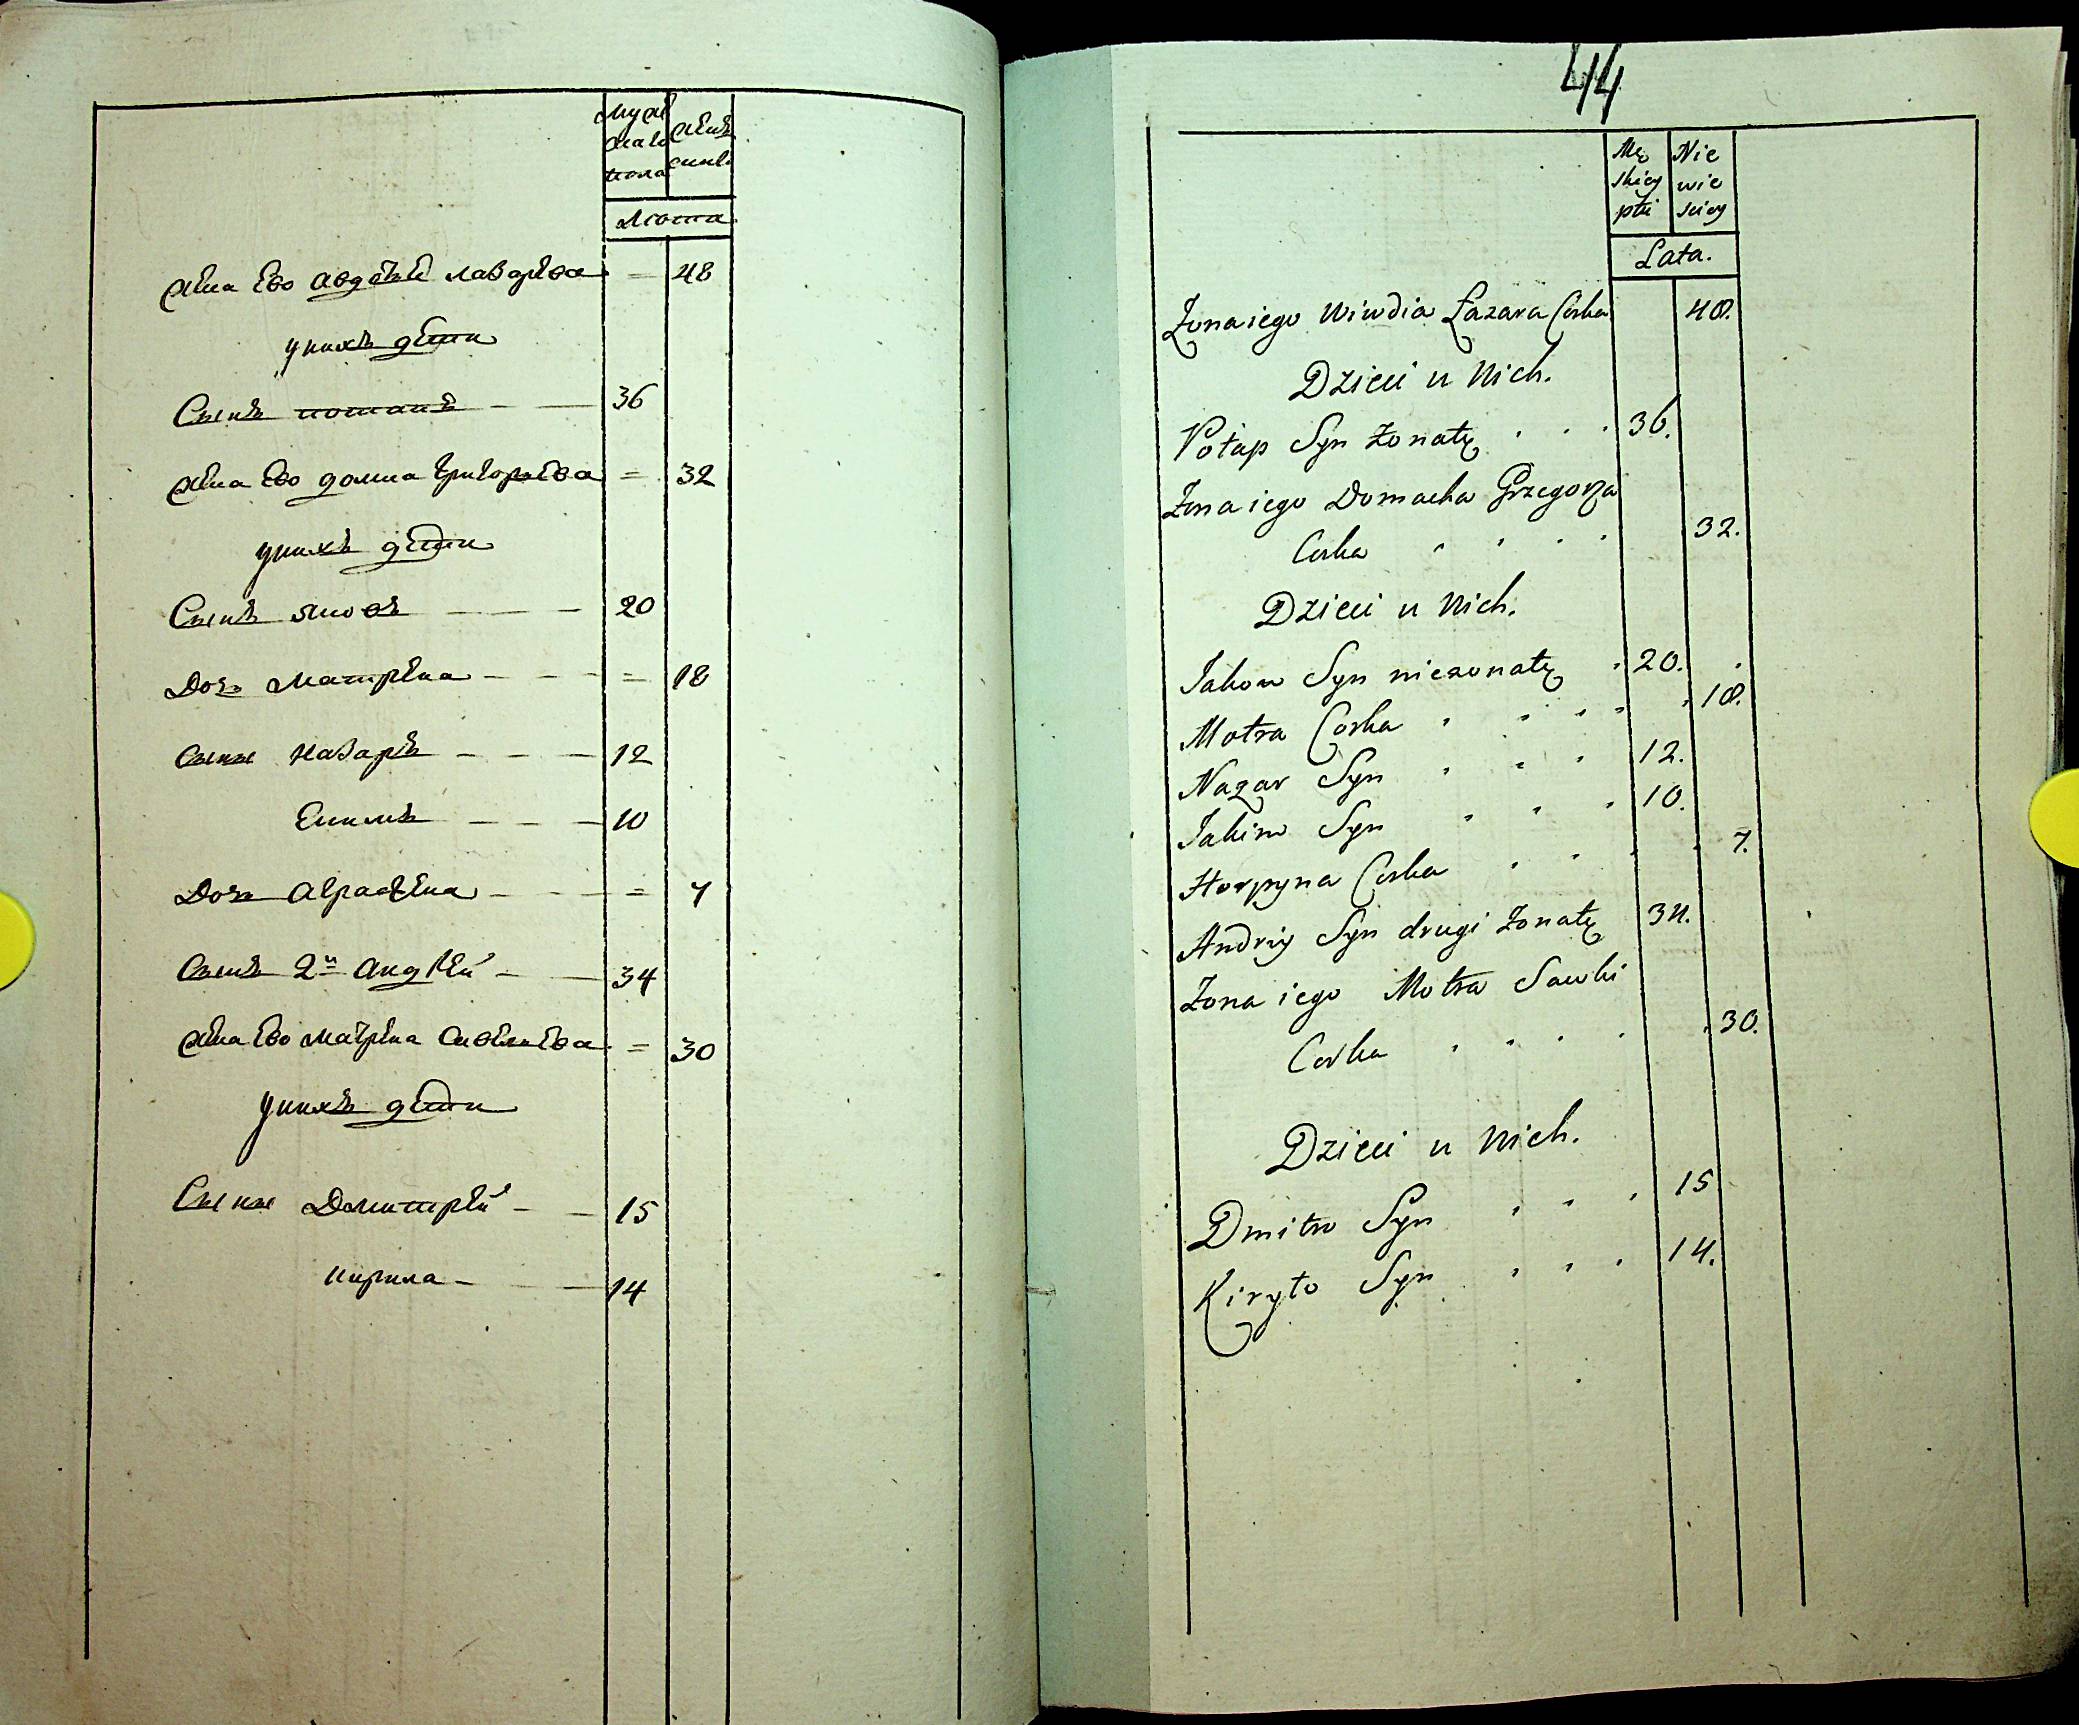 Муже
скаго
пола
Жен
скаго
Лета
Жена ево Авдотья Лазарева = 48
у них дети
Сынъ Потапъ — — 36
Жена ево Домна Григорьева = 32
у нихъ дети
Сынъ Яковъ — — — 20
Дочь Матрена — — — = 18
Сыны Назаръ — — — 12
Екимъ — — — 10
Дочь Аграфена — — — = 7
Сынъ 2й Андрей — — 34
Жена ево Матрена Савельева = 30
у нихъ дети
Сыны Дмитрей — — 15
Кирила — — 14
44
Mę
skiey
płci
Nie
wie
sciey
Lata.
Zona iego Wiwdia Łazara Corka 48.
Dzieci u Nich.
Potap Syn żonaty . . . 36.
Zona iego Domacha Grzegorza
Corka 32.
Dzieci u Nich.
Jakow Syn niezonaty . 20.
Motra Corka 18.
Nazar Syn 12.
Jakim Syn 10.
Horpyna Corka 7.
Andriy Syn drugi żonaty 34.
Zona iego Motra Sawki
Corka 30.
Dzieci u Nich.
Dmitro Syn 15
Kiryło Syn 14.